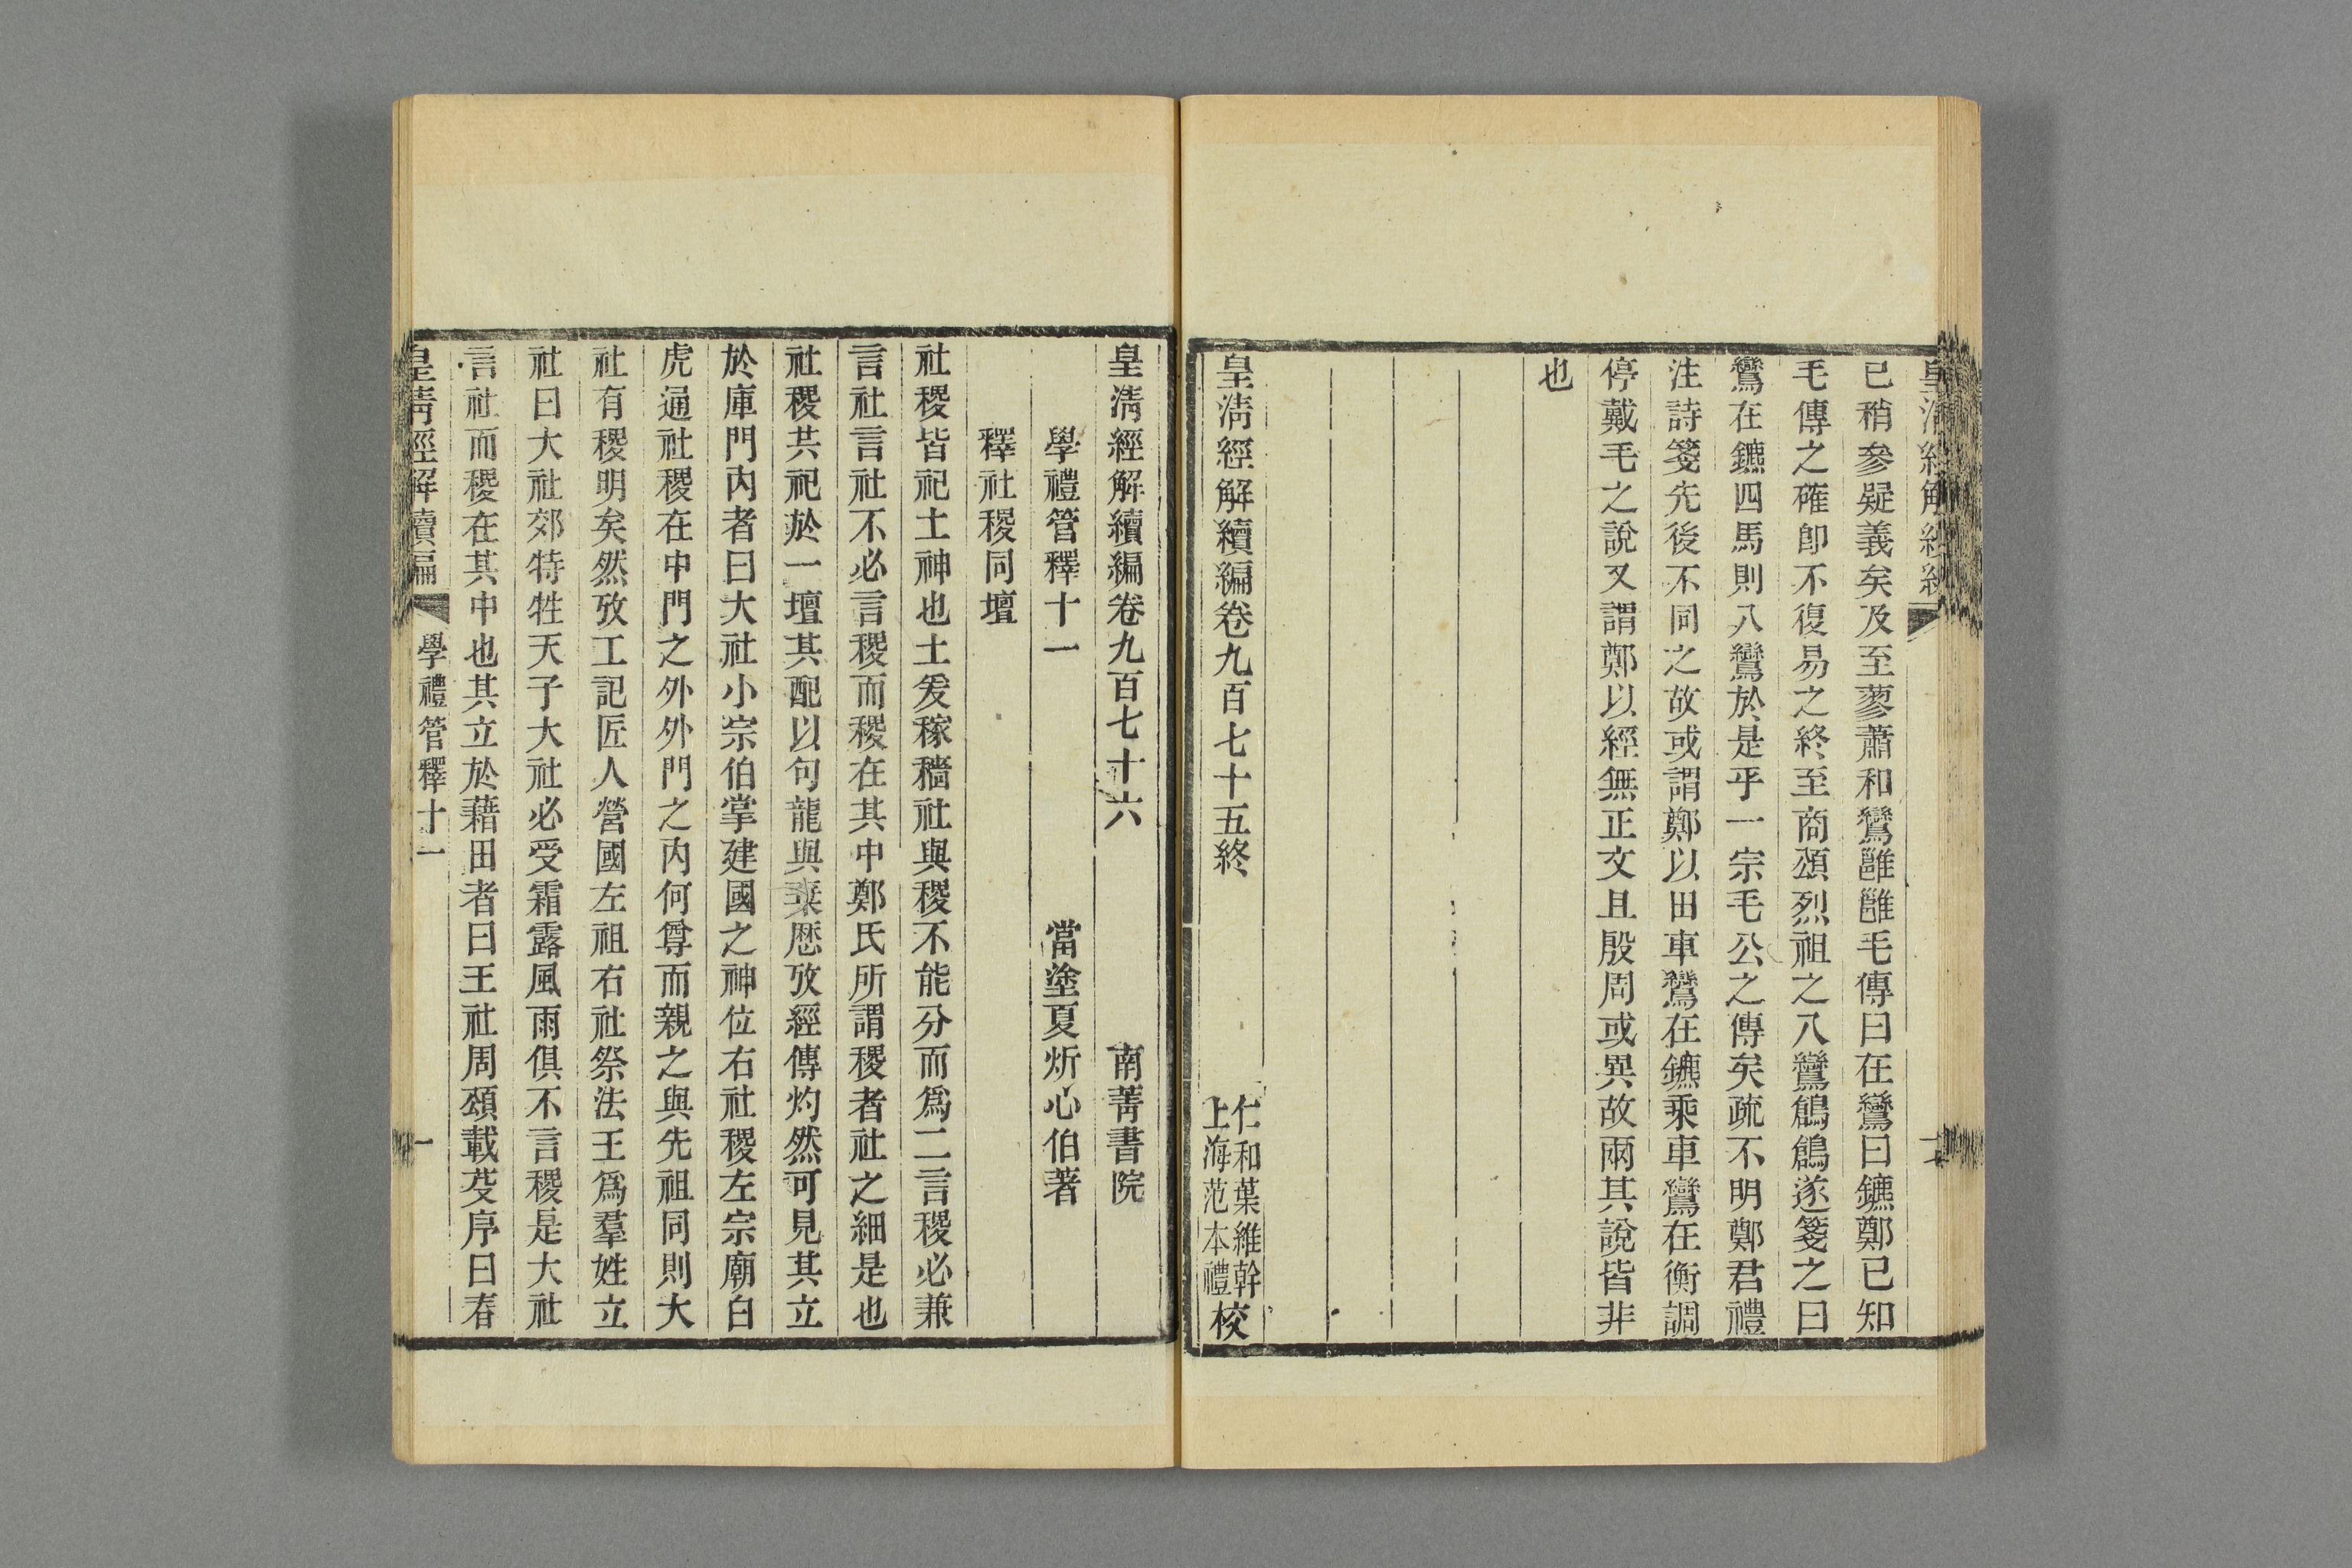 已稍參疑義矣及至蓼蕭和鸞雝雝毛傳曰在鸞曰鑣鄭已知
毛傳之確卽不復易之終至商頌烈祖之八鸞鶬鶬遂箋之曰
鸞在鑣四馬則八鸞於是乎一宗毛公之傳矣疏不明鄭君禮
注詩箋先後不同之故或謂鄭以田車鸞在鑣乘車鸞在衡調
停戴毛之說又謂鄭以經無正文且殷周或異故兩其說皆非
也
皇淸經解續編卷九百七十五終
仁和葉維幹
上海范本禮校
皇淸經解續編卷九百七十六
南菁書院
學禮管釋十一
當塗夏炘心伯著
釋社稷同壇
社稷皆祀土神也土爰稼穡社與稷不能分而爲二言稷必兼
言社言社不必言稷而稷在其中鄭氏所謂稷者社之細是也
社稷共祀於一壇其配以句龍與棄歷攷經傳灼然可見其立
於庫門內者曰大社小宗伯掌建國之神位右社稷左宗廟白
虎通社稷在中門之外外門之內何尊而親之與先祖同則大
社有稷明矣然攷工記匠人營國左祖右社祭法王爲羣姓立
社曰大社郊特牲天子大社必受霜露風雨俱不言稷是大社
言社而稷在其中也其立於藉田者曰王社周頌載芟序曰春
皇清經解續編
學禮管釋十一
一